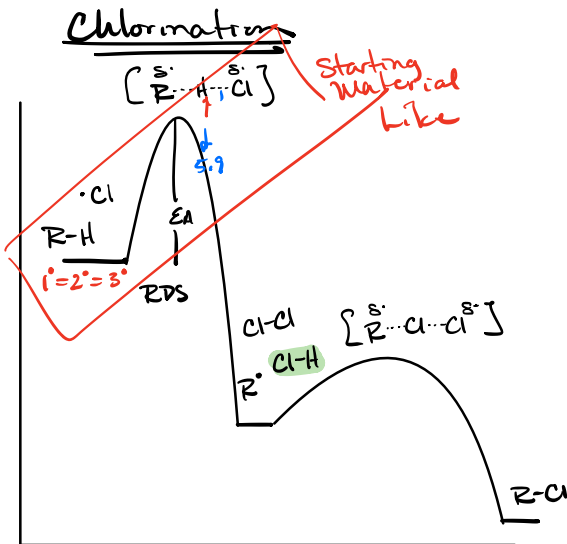 Chlorination
[R···H···Cl]
δ· δ·
Starting
Material
Like
5.9
·Cl
R-H
EA
1°=2°=3°
RDS
Cl-Cl
Cl-H
R·
[R···Cl···Cl]
δ· δ·
R-Cl